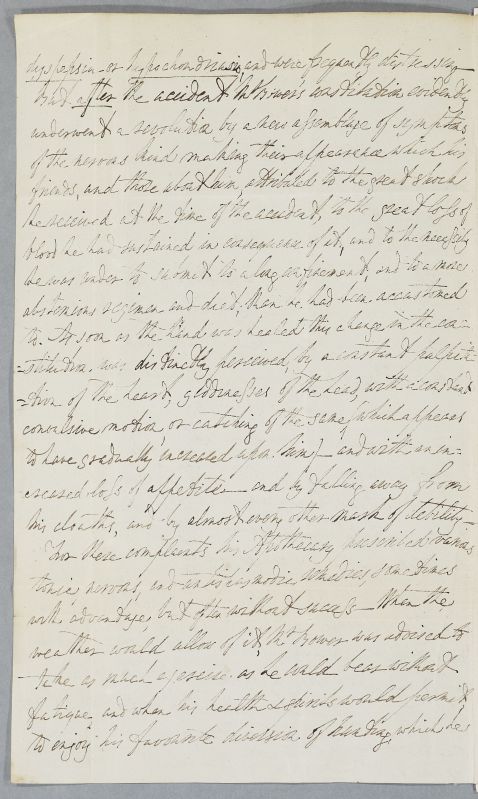 dyspepsia or hypochondriasis, and were frequently distressing
But after the accident Mr Bowers constitution evidently
underwent a revolution by a new assemblage of symptoms
of the nervous kind making their appearance which his
friends, and those about him attributed to the great shock
he received at the time of the accident, to the great loss of
blood he had sustained in consequence of it, and to the necessity
he was under to submit to a long confinement, and to a more
abstemious regimen and diet, than he had been accustomed
to. As soon as the hand was healed this change in the con-
-stitution was distinctly perceived, by a constant palpita-
-tion of the heart, giddinesses of the head, with a constant
convulsive motion, or catching of the same (which appears
to have gradually increased upon him) – and with an in-
-creased loss of appetite – and by falling away from
his cloaths, and by almost every other mark of debility –
For these complaints his Apothecary presented various
tonic, nervous, and antispasmodic remedies sometimes
with advantage, but often without success – When the
weather would allow of it, Mr Bower was advised to
take as much exercise as he could bear without
fatigue and when his health & spirits would permit
to enjoy his favourite diversion of hunting, which he